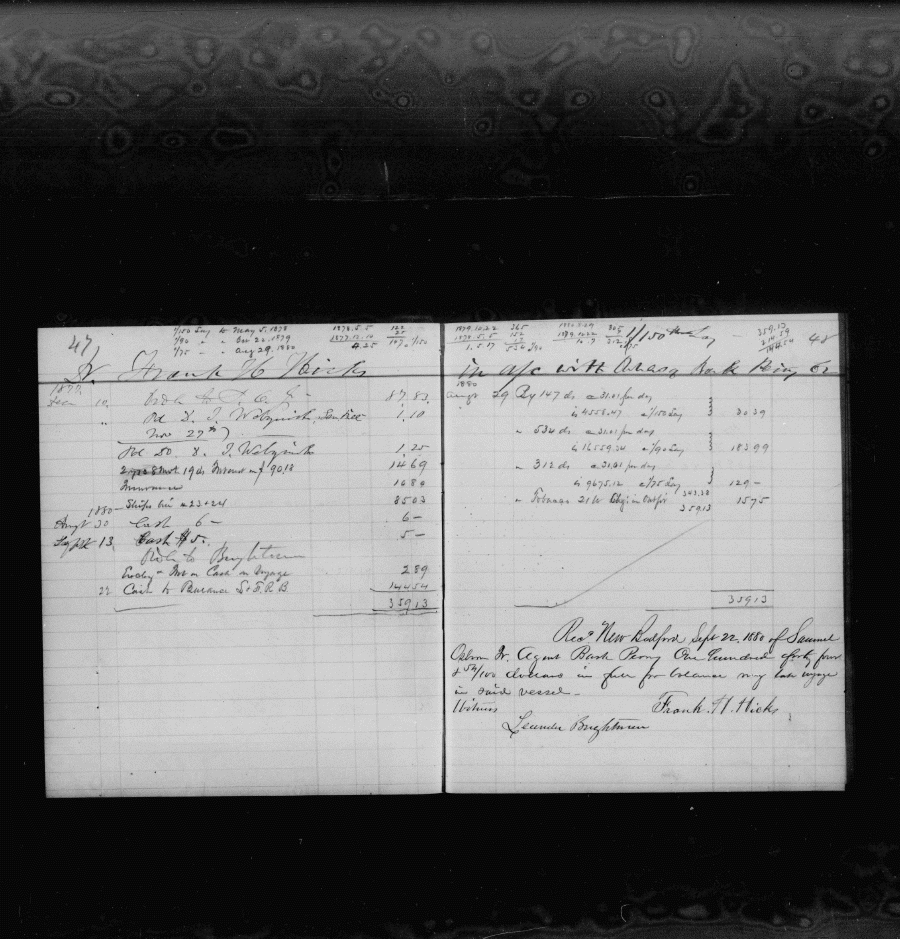 47
1/150 Lay to May 5. 1878
1/90 " " Oct 22. 1879
1/75 " " Aug 29. 1880
1878. 5. 5
1877. 12. 14
4. 25
122
25
147 a 1/150
Dr. Frank H Hicks
1877
Dec 10 87.83
" Pd D. J. 1.10
Nov 27th
Pd Do D. J. 1.25
8 mos 19 ds Interest on $ 90.18 14 69
Insurance 10 80
Ships bill a 23 + 24 85 03
1880
Augt 30 Cash 6 - 6 -
Septr 13 Cash $5. 5 -
Brightman
Int on Cash on Voyage 2 89
22 Cash to Balance 144 54
359.13
1879. 10. 22
1878. 5. 5
1. 5. 17
365
152
17
534 a/90
1880. 8. 29
1879. 10. 22
10. 7
305
7
312 a/75
1/150 th Lay
359.13
214 59
144.54
48
in a/c with Bark Peiry Cr
1880
Augt 29 By 147 ds a 31.01 per day
is 4558.47 a 1/150 Lay 30 39
" 534 ds a 31.01 per day
is 16559.34 a 1/90 Lay 183 99
" 312 ds a 31.01 per day
is 9675.12 a 1/75 Lay 129 -
343.38
" 21 lb Chgd in Outfit 15 75
359.13
359 13
Recd New Bedford Sept 22. 1880 of Samuel
Osborn Jr. Agent Bark Perry One hundred & forty four
& 54/100 dollars in full for balance my late voyage
in said vessel -
Witness Frank. H. Hicks
Leander Brightman